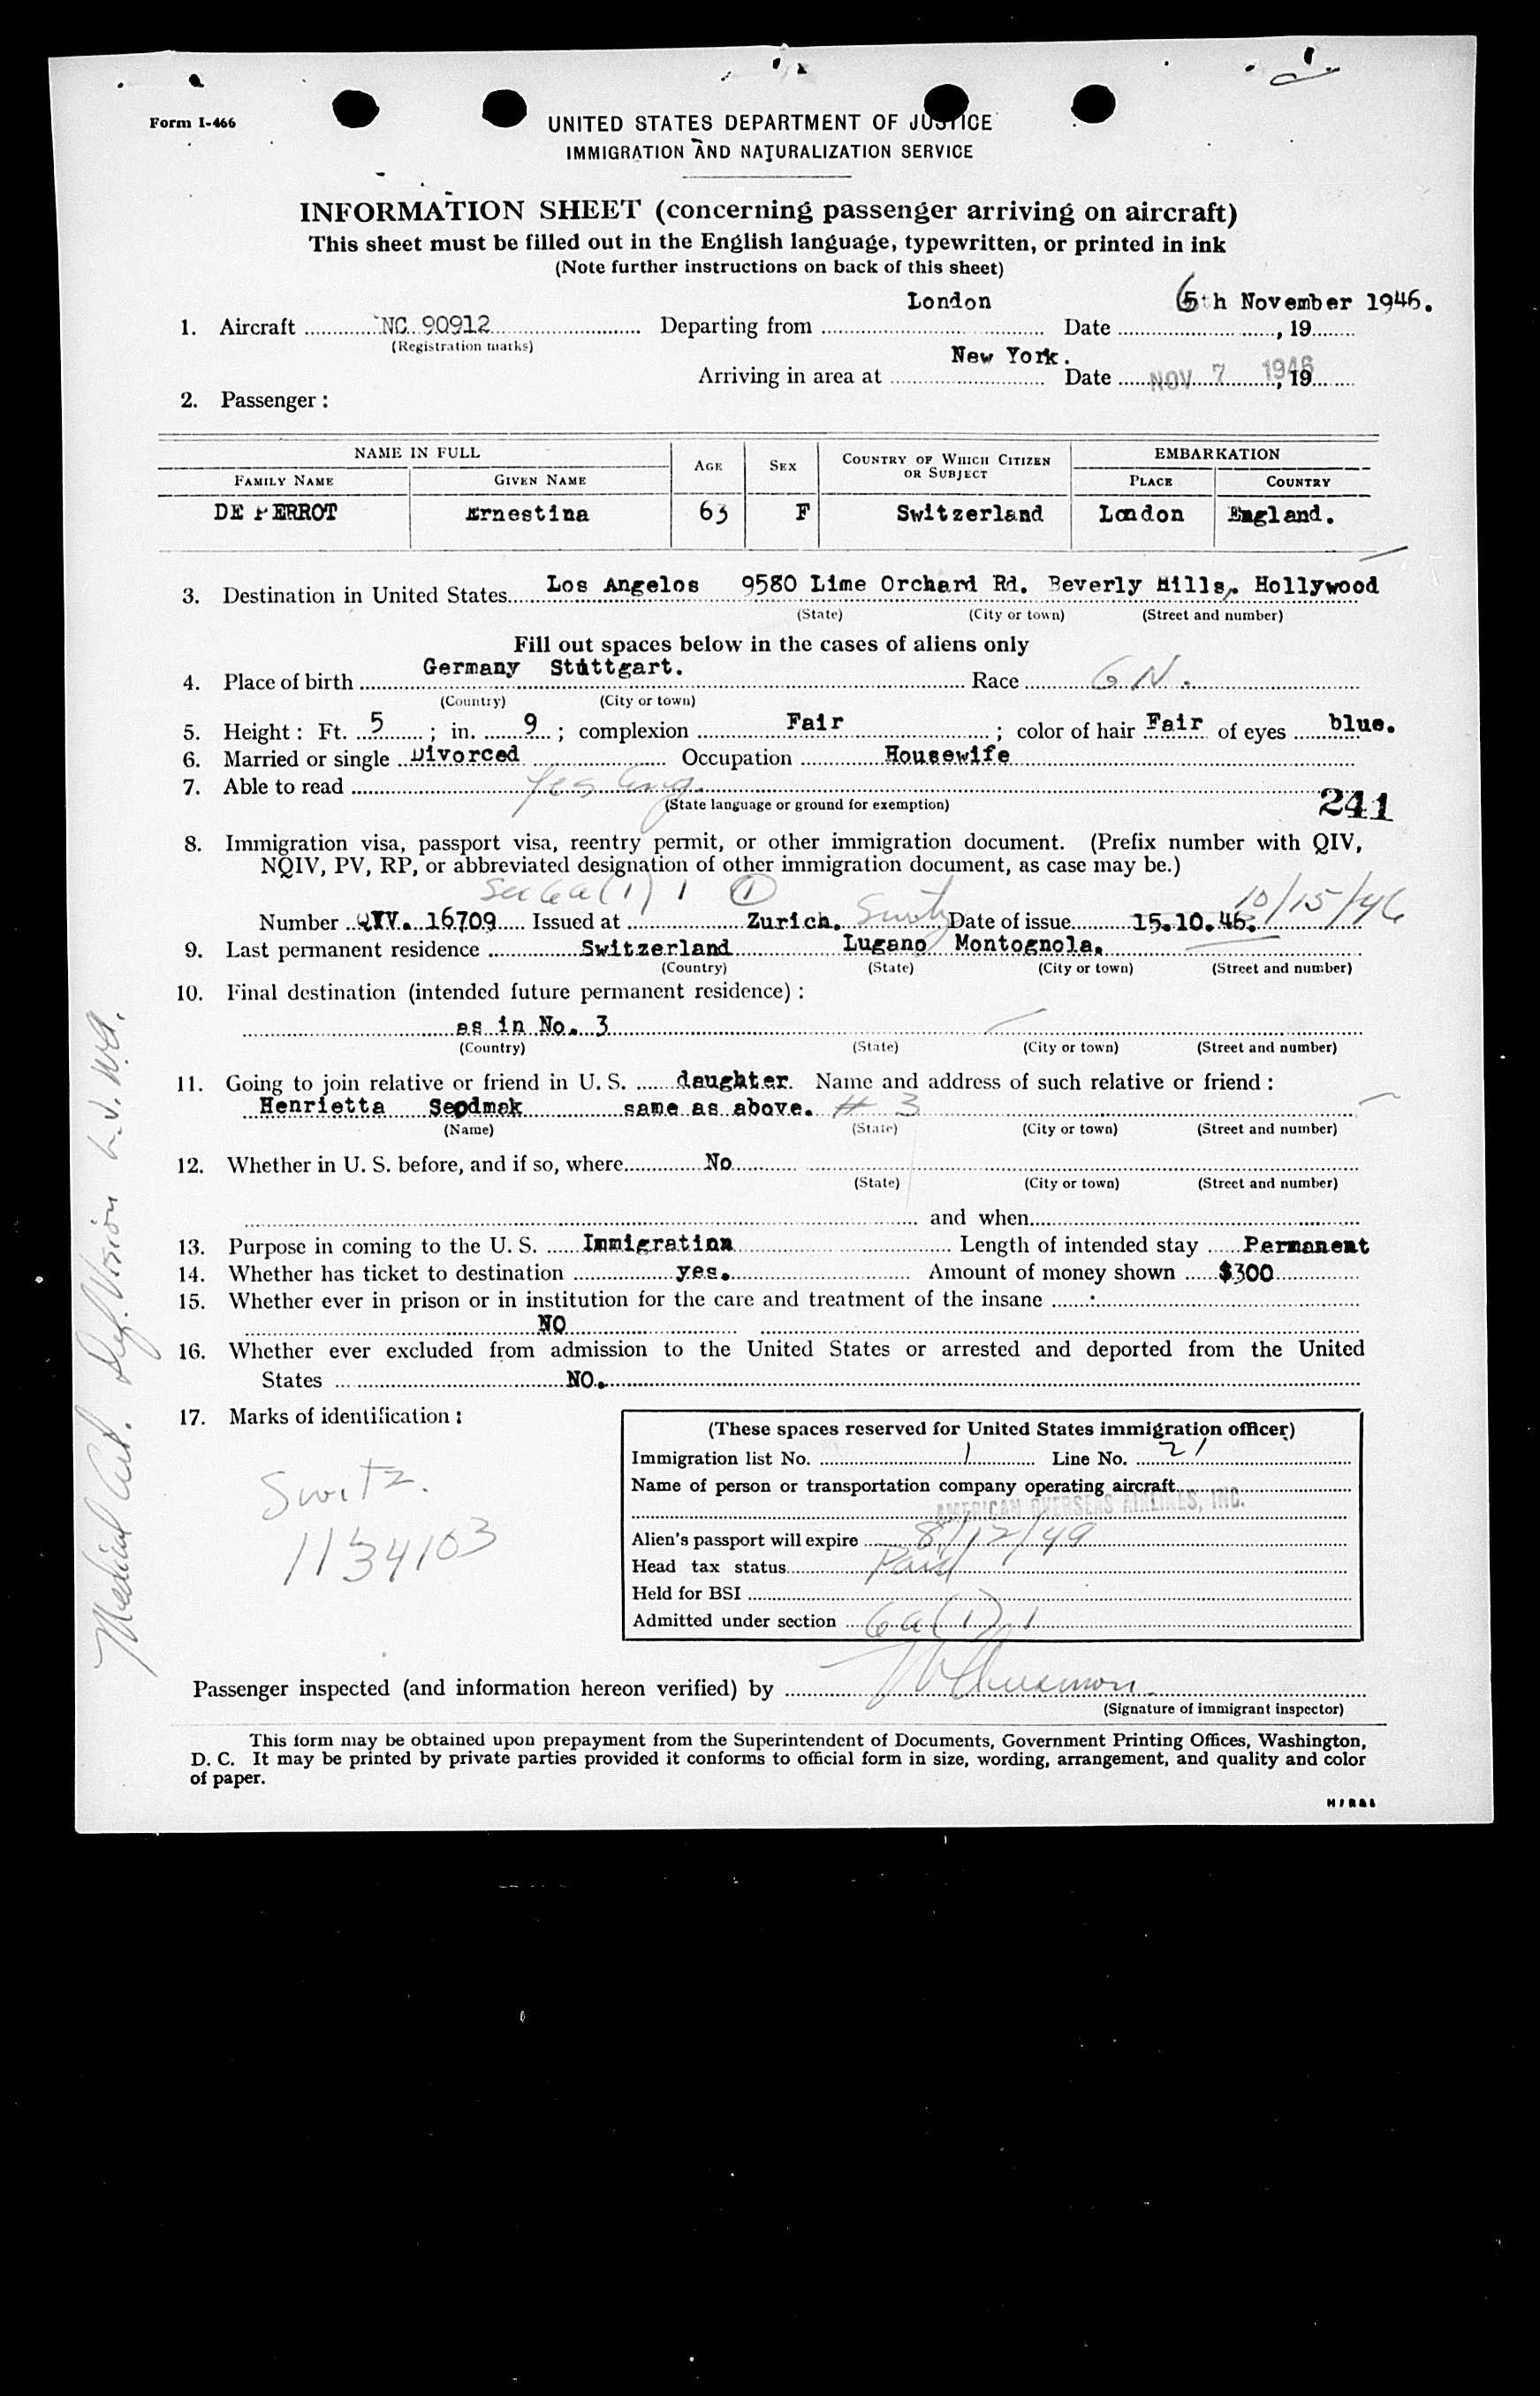 Form I-466
UNITED STATES DEPARTMENT OF JUSTICE
IMMIGRATION AND NATURALIZATION SERVICE
INFORMATION SHEET (concerning passenger arriving on aircraft)
This sheet must be filled out in the English language, typewritten, or printed in ink
(Note further instructions on back of this sheet)
London 6th November 1946.
1. Aircraft NC 90912 Departing from Date , 19
(Registration marks)
New York.
Arriving in area at Date NOV 7 1946 , 19
2. Passenger :
NAME IN FULL AGE SEX COUNTRY OF WHICH CITIZEN OR SUBJECT EMBARKATION
FAMILY NAME GIVEN NAME PLACE COUNTRY
DE PERROT Ernestina 63 F Switzerland London England.
3. Destination in United States Los Angelos 9580 Lime Orchard Rd. Beverly Hills, Hollywood
(State) (City or town) (Street and number)
Fill out spaces below in the cases of aliens only
4. Place of birth Germany Stuttgart. Race G N.
(Country) (City or town)
5. Height : Ft. 5 ; in. 9 ; complexion Fair ; color of hair Fair of eyes blue.
6. Married or single Divorced Occupation Housewife
7. Able to read Yes Eng.
(State language or ground for exemption)
241
8. Immigration visa, passport visa, reentry permit, or other immigration document. (Prefix number with QIV,
NQIV, PV, RP, or abbreviated designation of other immigration document, as case may be.)
Sec 6a(1) 1 1 10/15/46
Number QIV. 16709 Issued at Zurich. Switz Date of issue 15.10.46.
9. Last permanent residence Switzerland Lugano Montognola.
(Country) (State) (City or town) (Street and number)
10. Final destination (intended future permanent residence) :
as in No. 3
(Country) (State) (City or town) (Street and number)
11. Going to join relative or friend in U. S. daughter. Name and address of such relative or friend :
Henrietta Seodmak same as above. # 3
(Name) (State) (City or town) (Street and number)
12. Whether in U. S. before, and if so, where No
(State) (City or town) (Street and number)
and when
13. Purpose in coming to the U. S. Immigration Length of intended stay Permanent
14. Whether has ticket to destination yes. Amount of money shown $300
15. Whether ever in prison or in institution for the care and treatment of the insane
NO
16. Whether ever excluded from admission to the United States or arrested and deported from the United
States NO.
17. Marks of identification :
Switz.
1134103
(These spaces reserved for United States immigration officer)
Immigration list No. 1 Line No. 21
Name of person or transportation company operating aircraft
AMERICAN OVERSEAS AIRLINES, INC.
Alien's passport will expire 8/12/49
Head tax status Paid
Held for BSI
Admitted under section 6a(1) 1
Passenger inspected (and information hereon verified) by
(Signature of immigrant inspector)
This form may be obtained upon prepayment from the Superintendent of Documents, Government Printing Offices, Washington,
D. C. It may be printed by private parties provided it conforms to official form in size, wording, arrangement, and quality and color
of paper.
Medical Cert. Def. Vision